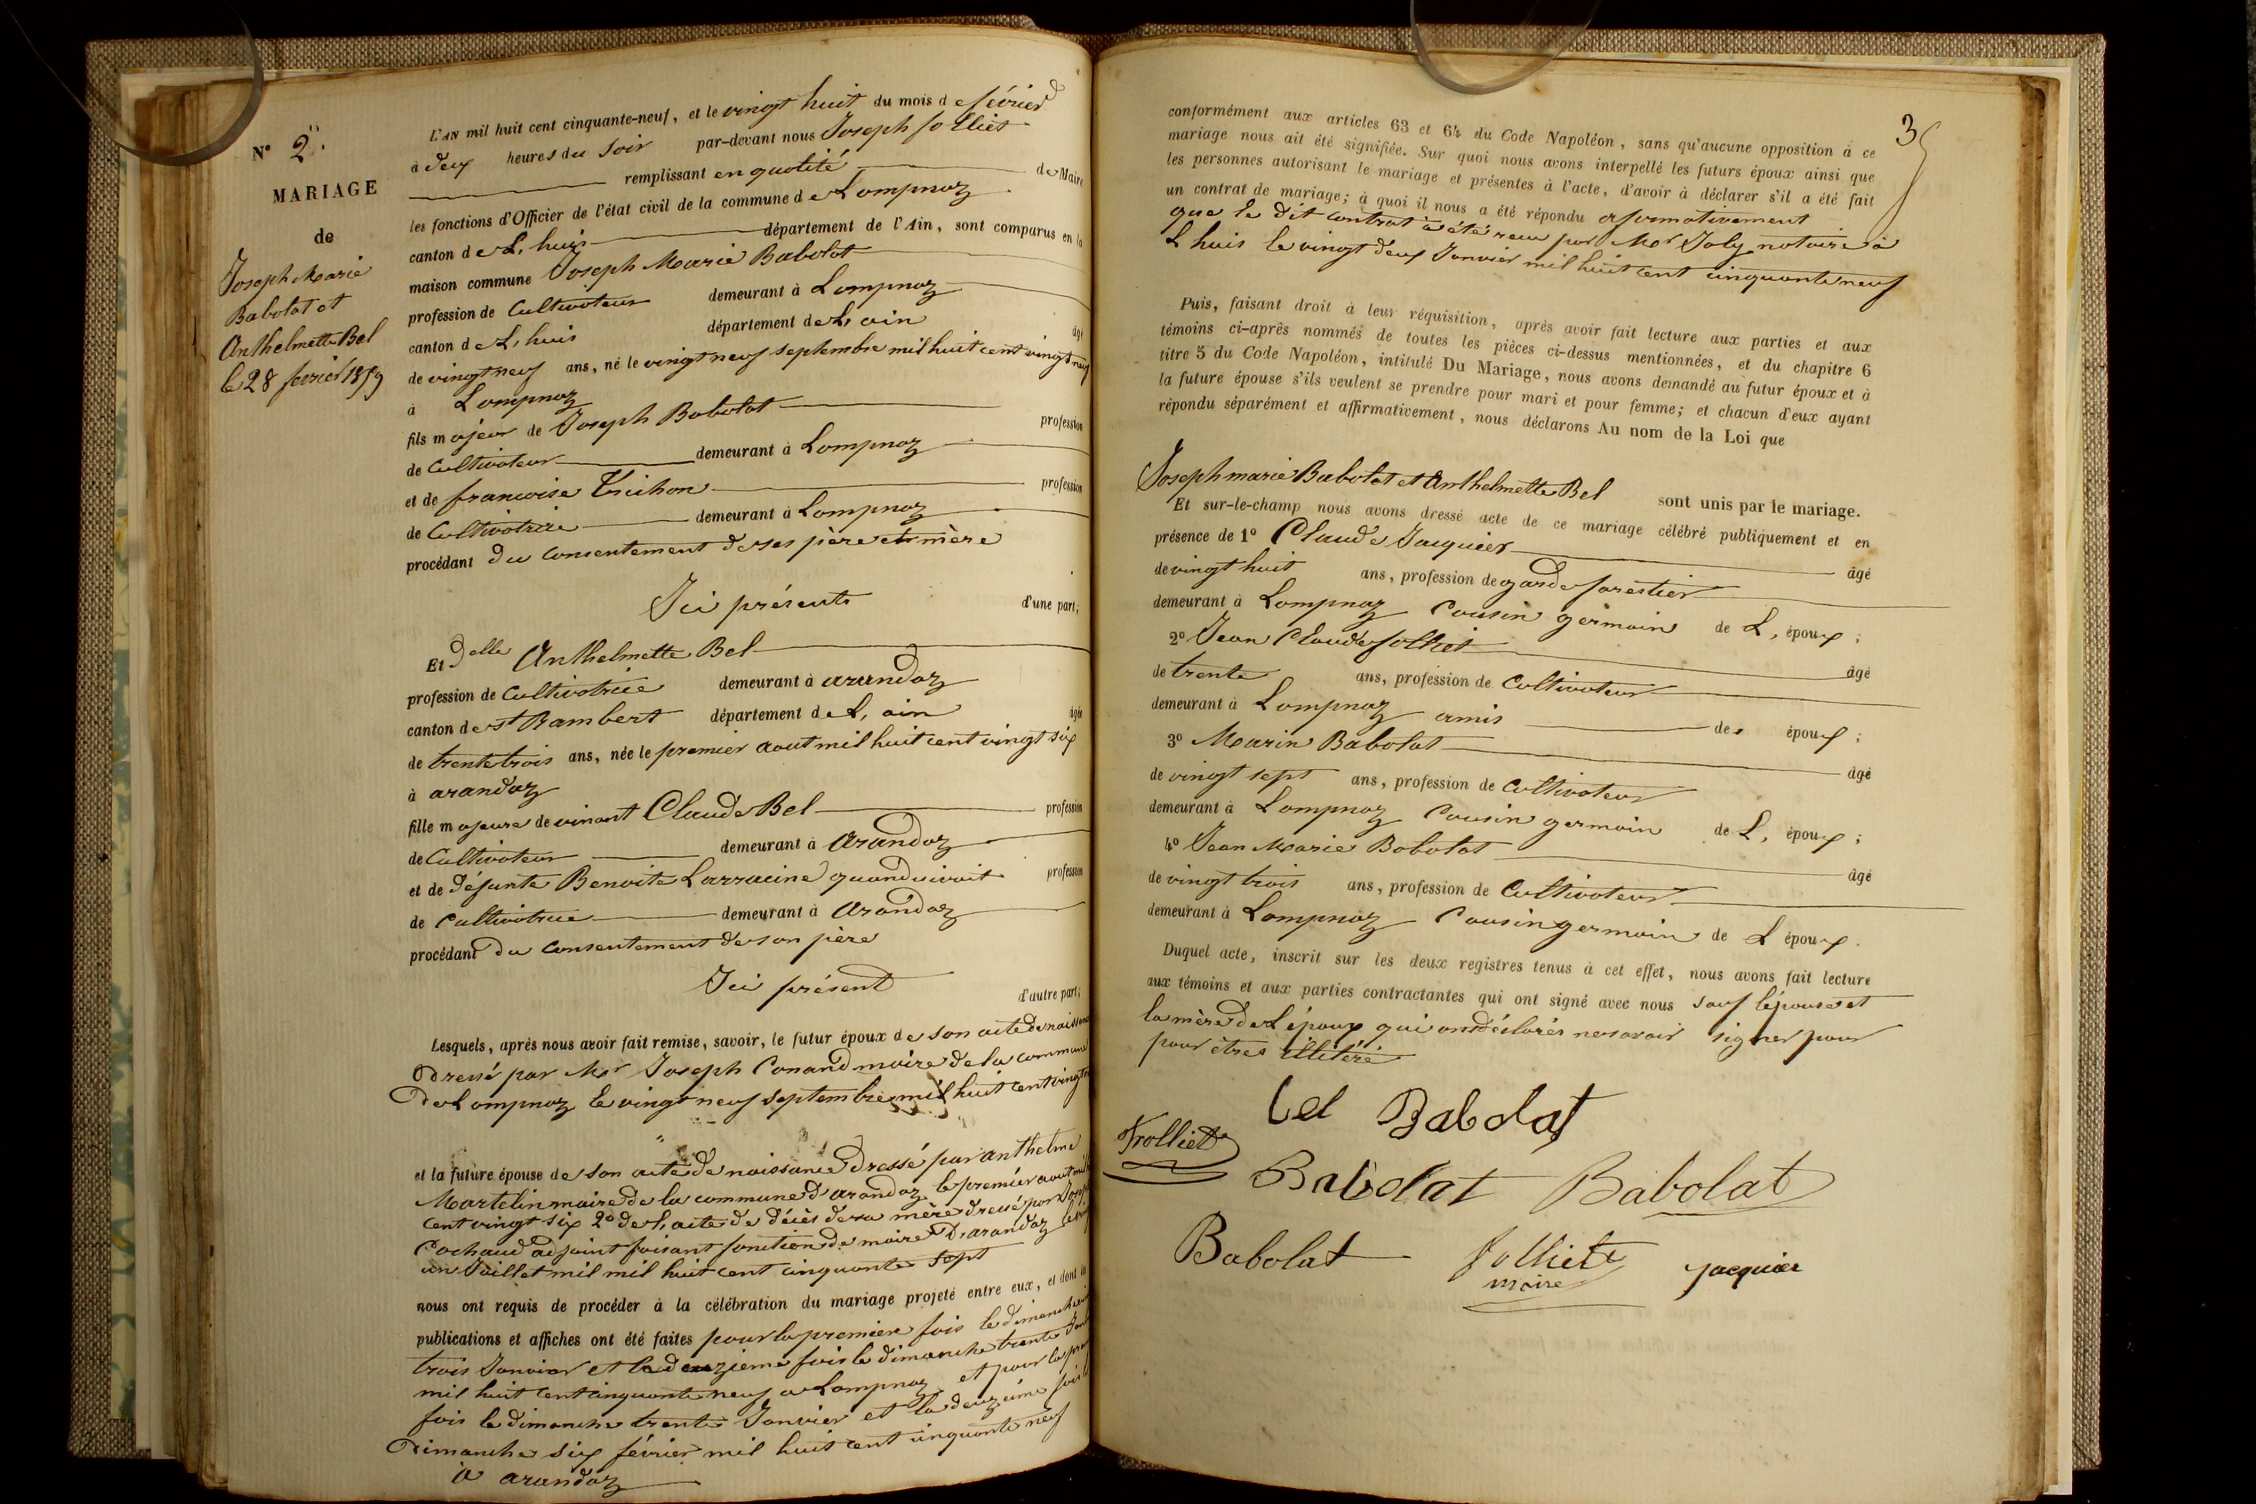 N° 2
MARIAGE
de
Joseph Marie
Babolat et
Anthelmette Bel
le 28 fevrier 1859
L'AN mil huit cent cinquante-neuf, et le vingt huit du mois de février
à deux heures du soir par-devant nous Joseph jolliet
remplissant en qualité de Maire
les fonctions d'Officier de l'état civil de la commune de Lompnaz
canton de L, huis département de l'Ain, sont comparus en la
maison commune Joseph Marie Babolat
profession de Cultivateur demeurant à Lompnaz
canton de L, huis département de L, ain âgé
de vingt neuf ans, né le vingt neuf septembre mil huit cent vingt neuf
à Lompnaz
fils majeur de Joseph Babolat profession
de Cultivateur demeurant à Lompnaz
et de francoise Trichon profession
de Cultivatrice demeurant à Lompnaz
procédant du consentement de ses père et mère
Ici présents d'une part;
Et delle Anthelmette Bel
profession de Cultivatrice demeurant à arandaz
canton de st Rambert département de L, ain âgée
de trente trois ans, née le premier aout mil huit cent vingt six
à arandaz
fille majeure de vivant Claude Bel profession
de Cultivateur demeurant à Arandaz
et de défunte Benoite Larracine quand vivait profession
de Cultivatrice demeurant à Arandaz
procédant du consentement de son père
Ici présent d'autre part;
Lesquels, après nous avoir fait remise, savoir, le futur époux de son acte de naissance
dressé par Mr Joseph Conand maire de la commune
de Lompnaz le vingt neuf septembre mil huit cent vingt
et la future épouse de son acte de naissance dressé par anthelme
Martelin maire de la commune d'arandaz le premier aout mil
cent vingt six 2° de L, acte de décès de sa mère dressé par Joseph
Cochaud adjoint faisant fonction de maire D, arandaz le
un Juillet mil mil huit cent cinquante sept
nous ont requis de procéder à la célébration du mariage projeté entre eux, et dont les
publications et affiches ont été faites pour la premiere fois le dimanche
trois Janvier et la deuzieme fois le dimanche trente Janvier
mil huit cent cinquante neuf a Lompnaz et pour la premiere
fois le dimanche trente Janvier et la deuzieme fois le
Dimanche six février mil huit cent cinquante neuf
a arandaz
3
conformément aux articles 63 et 64 du Code Napoléon, sans qu'aucune opposition à ce
mariage nous ait été signifiée. Sur quoi nous avons interpellé les futurs époux ainsi que
les personnes autorisant le mariage et présentes à l'acte, d'avoir à déclarer s'il a été fait
un contrat de mariage; à quoi il nous a été répondu afirmativement
que le dit contrat à été recu par Mer Joly notaire à
L huis le vingt deux Janvier mil huit cent cinquante neuf
Puis, faisant droit à leur réquisition, après avoir fait lecture aux parties et aux
témoins ci-après nommés de toutes les pièces ci-dessus mentionnées, et du chapitre 6
titre 5 du Code Napoléon, intitulé Du Mariage, nous avons demandé au futur époux et à
la future épouse s'ils veulent se prendre pour mari et pour femme; et chacun d'eux ayant
répondu séparément et affirmativement, nous déclarons Au nom de la Loi que
Joseph marie Babolat et Anthelmette Bel sont unis par le mariage.
Et sur-le-champ nous avons dressé acte de ce mariage célébré publiquement et en
présence de 1° Claude Jacquier âgé
de vingt huit ans, profession de garde forestier
demeurant à Lompnaz Cousin germain de L, époux;
2° Jean Claude jolliet âgé
de trente ans, profession de Cultivateur
demeurant à Lompnaz amis des époux;
3° Marin Babolat âgé
de vingt sept ans, profession de Cultivateur
demeurant à Lompnaz Cousin germain de L, époux;
4° Jean Marie Babolat âgé
de vingt trois ans, profession de Cultivateur
demeurant à Lompnaz Cousin germain de L époux.
Duquel acte, inscrit sur les deux registres tenus à cet effet, nous avons fait lecture
aux témoins et aux parties contractantes qui ont signé avec nous sauf lépouse et
la mère de L époux qui ont déclarés ne savoir signer pour
pour êtres illitéré
Bel Babolat
Jolliet
Babolat Babolat
Babolat Jolliet jacquier
maire